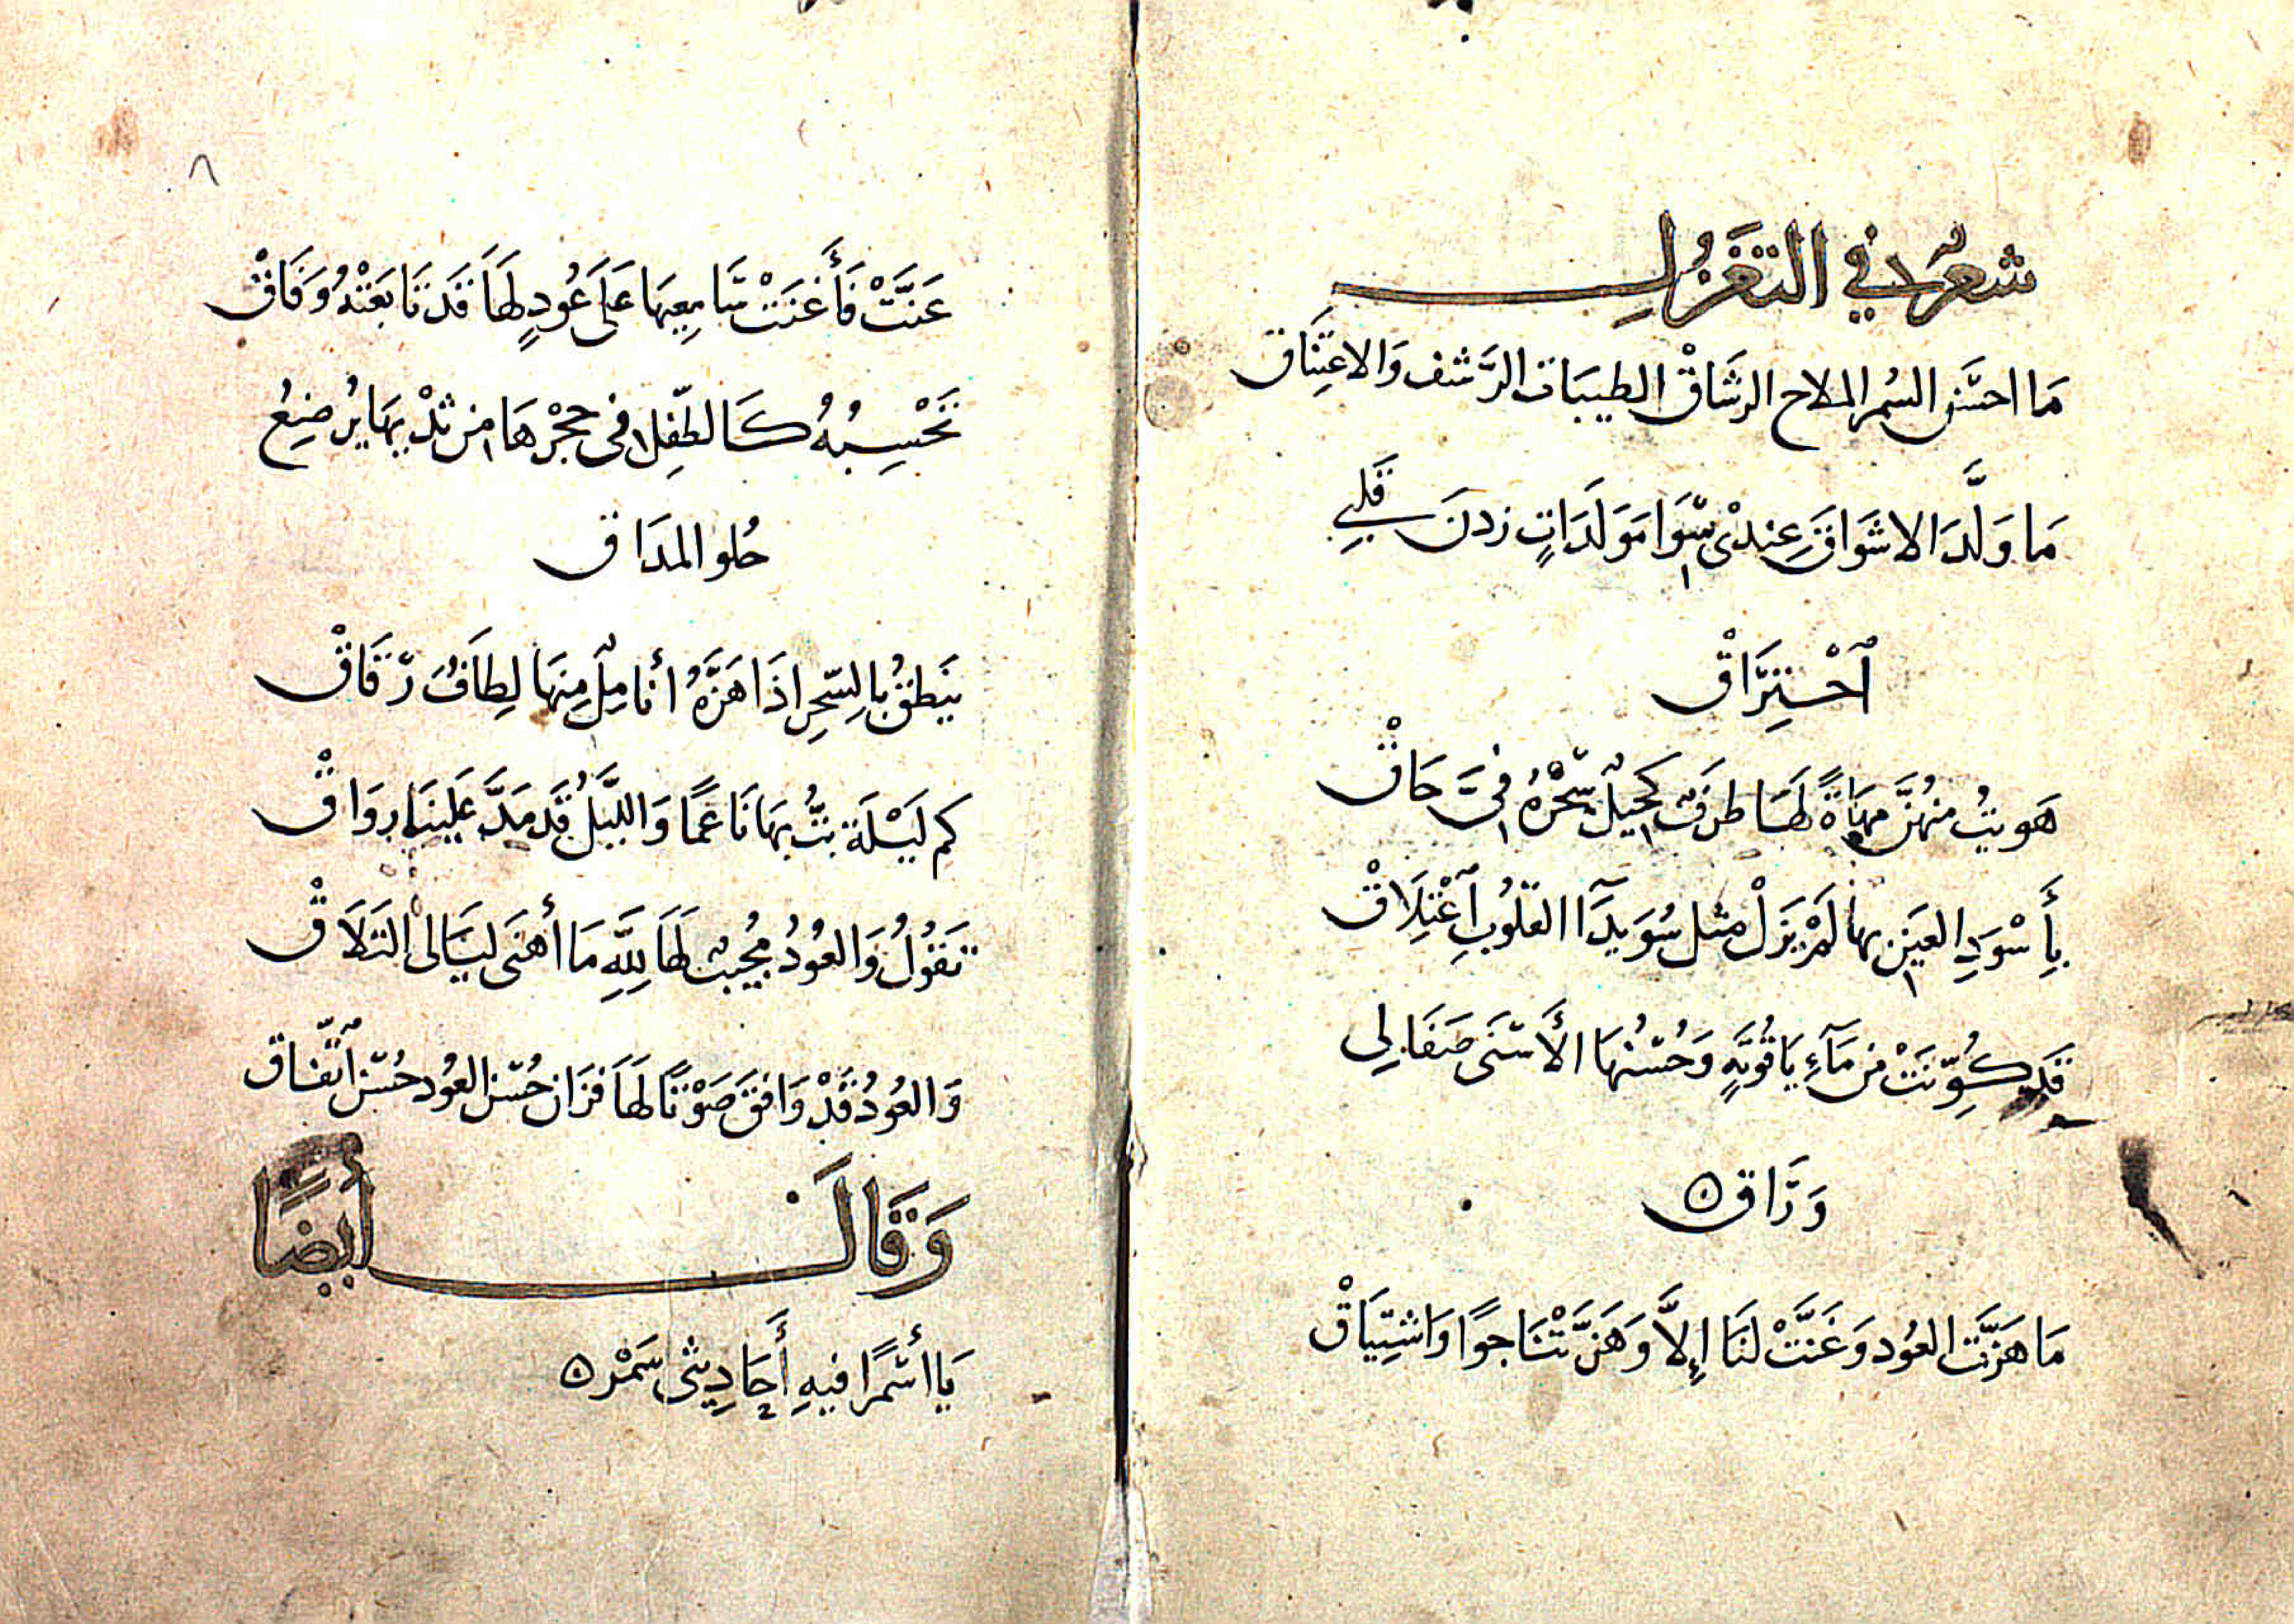 شعرٌ في التغَزُلِ
مَا احسَن السُمر الملاح الرشَاقْ الطيبَات الرَّشف وَالاعتِنَاق
مَا وَلَّدَ الاشَوَاقَ عِندْى سِّوَا مَوَلَدَاتٍ زدنَ قَلبِي
اَحْتِرَاقْ
هَويتُ منهُنَّ مهَاةً لهَا طرفٌ كَحِيلٌ سّحْرهُ فىَّ حَاقْ
بِأَسْوَدِ العَين بها لَمْ يَزَلْ مثل سُوَيدَآ القلُوبِ اَغْتِلَاقْ
قَد كُوِّنَتْ من مَآءِ يَاقُوتَهٍ وَحُسْنُهَا الأَسْنَى صَفَا لِى
وَرَاق
مَا هَزَّت العُود وَغَنَّتْ لنَا إِلَّا وَهَزَّتْنَا جوًا وَاشتِيَاقْ
٨
غَنَّتْ فَأَغنَتْ سَامِعِيهَا عَلَى عُودٍ لهَا قَد تَابَعَتْهُ وَفَاقْ
تَحْسِبُهُ كَالطّفِل فى حِجْرهَا من ثدْيهَا يرُضِعُ
حُلو المدَاق
يَنطقُ بالسّحرِ اذَا هَزَّهُ أنَامِلٌ مِنهَا لِطَافٌ رّقَاقْ
كم لَيْلَة بتُّ بهَا نَاعمًا وَاللَّيلُ قَد مَدَّ عَلينَا روَاقْ
تَقُولُ وَالعُودُ مُجيبٌ لهَا للَّهِ مَا أهنَى ليَالى التَلَاقْ
وَالعُودُ قَدْ وَافقَ صَوْتًا لهَا فزَان حُسْن العُود حُسْن اَتّفاق
وَقَالَ أيضًا
يَا أسْمرًا فيهِ أَحَادِيثى سَمْر